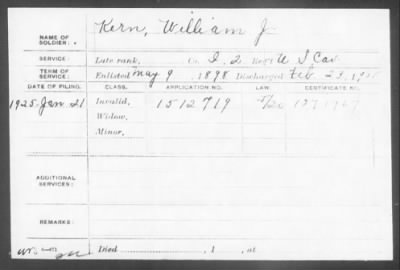 NAME OF SOLDIER: Kern, William J
SERVICE: Late rank, Co. I, 2 Reg't U S Cav
TERM OF SERVICE: Enlisted May 9, 1898 Discharged Feb.
DATE OF FILING. CLASS. APPLICATION NO. LAW. CERTIFICATE NO.
1925 Jan. 21 Invalid, 1512719
Widow,
Minor,
ADDITIONAL SERVICES:
REMARKS:
Died , 1 , at